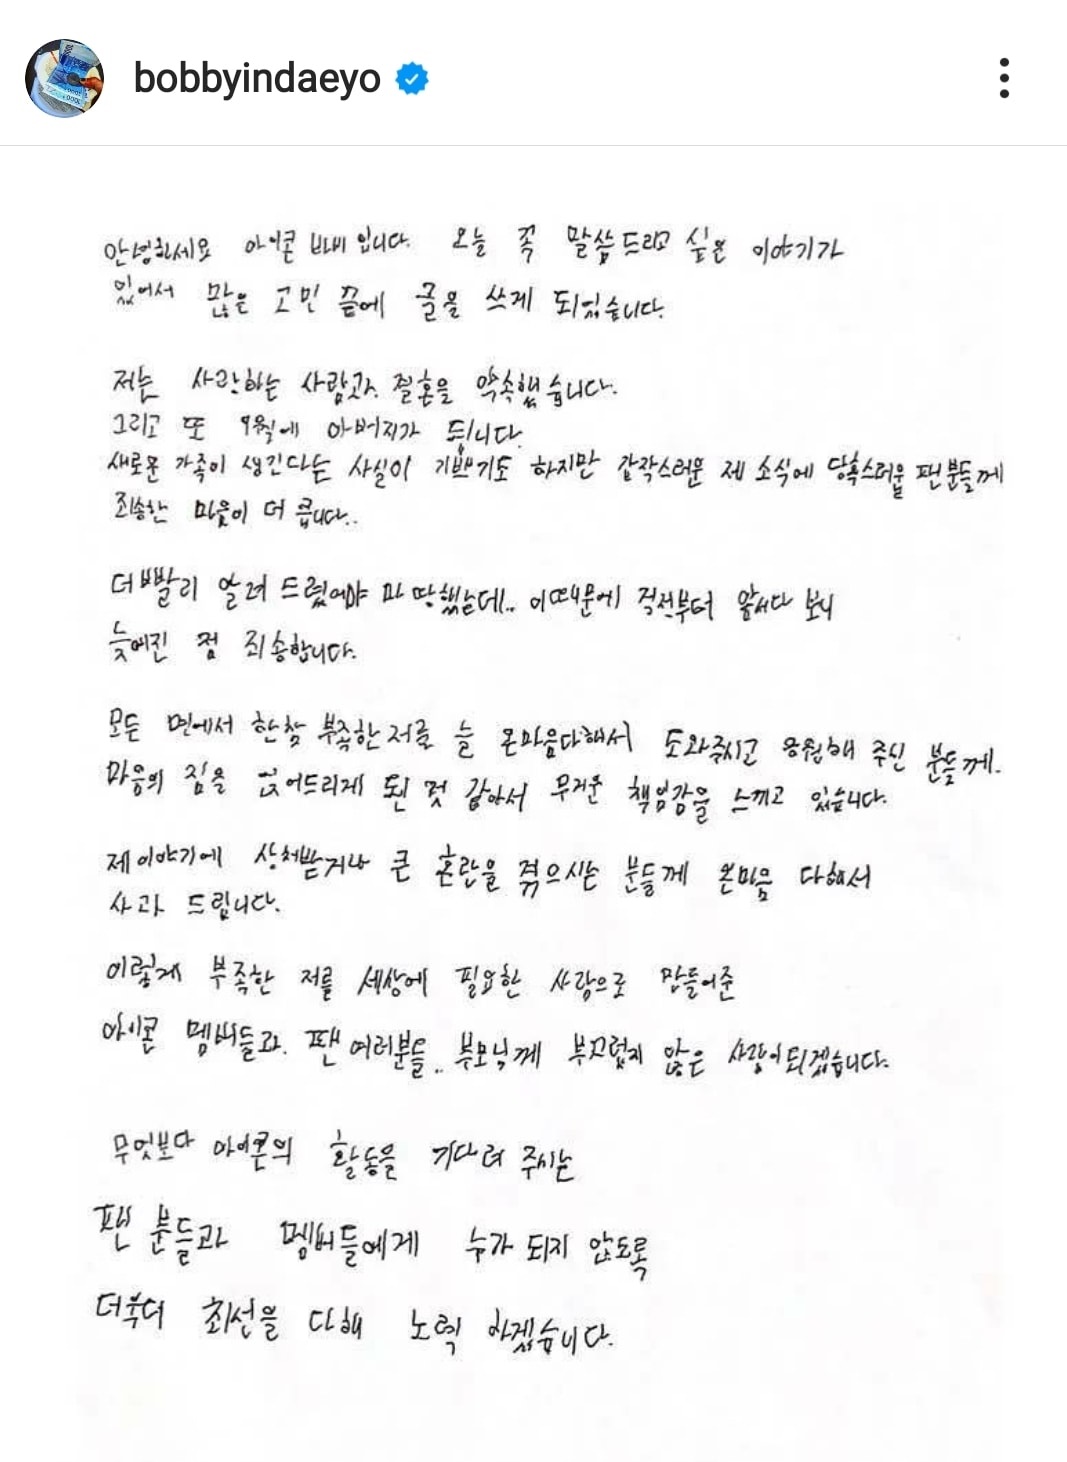 bobbyindaeyo
안녕하세요 아이콘 바비 입니다. 오늘 꼭 말씀드리고 싶은 이야기가
있어서 많은 고민 끝에 글을 쓰게 되었습니다.
저는 사랑하는 사람과 결혼을 약속했습니다.
그리고 또 9월에 아버지가 됩니다.
새로운 가족이 생긴다는 사실이 기쁘기도 하지만 갑작스러운 제 소식에 당혹스러울 팬분들께
죄송한 마음이 더 큽니다..
더 빨리 알려 드렸어야 마땅했는데.. 이 때문에 걱정부터 앞서다 보니
늦어진 점 죄송합니다.
모든 면에서 한참 부족한 저를 늘 온마음다해서 도와주시고 응원해 주신 분들께.
마음의 짐을 얹어드리게 된 것 같아서 무거운 책임감을 느끼고 있습니다.
제 이야기에 상처받거나 큰 혼란을 겪으시는 분들께 온마음 다해서
사과 드립니다.
이렇게 부족한 저를 세상에 필요한 사람으로 만들어준
아이콘 멤버들과. 팬 여러분들.. 부모님께 부끄럽지 않은 사람이 되겠습니다.
무엇보다 아이콘의 활동을 기다려 주시는
팬 분들과 멤버들에게 누가 되지 않도록
더욱더 최선을 다해 노력 하겠습니다.